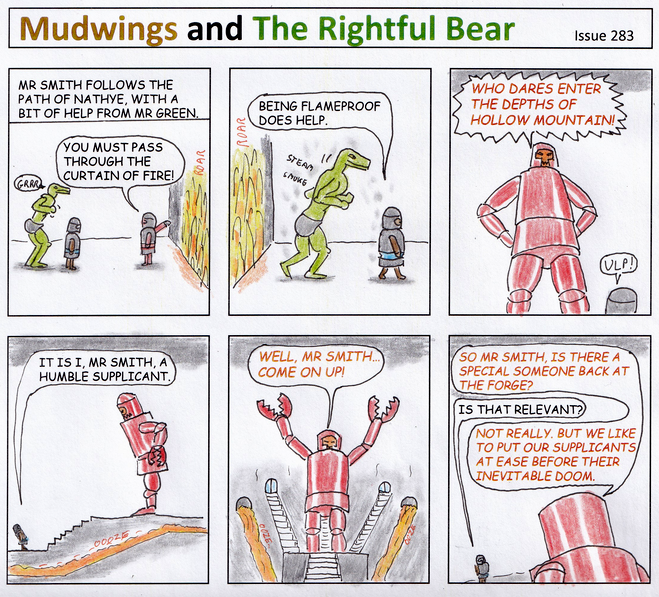 Mudwings and The Rightful Bear
Issue 283
MR SMITH FOLLOWS THE
PATH OF NATHYE, WITH A
BIT OF HELP FROM MR GREEN.
YOU MUST PASS
THROUGH THE
CURTAIN OF FIRE!
GRRR
ROAR
BEING FLAMEPROOF
DOES HELP.
ROAR
STEAM
SMOKE
WHO DARES ENTER
THE DEPTHS OF
HOLLOW MOUNTAIN!
ULP!
IT IS I, MR SMITH, A
HUMBLE SUPPLICANT.
OOOZE
WELL, MR SMITH...
COME ON UP!
OOZE
OOZE
SO MR SMITH, IS THERE A
SPECIAL SOMEONE BACK AT
THE FORGE?
IS THAT RELEVANT?
NOT REALLY. BUT WE LIKE
TO PUT OUR SUPPLICANTS
AT EASE BEFORE THEIR
INEVITABLE DOOM.